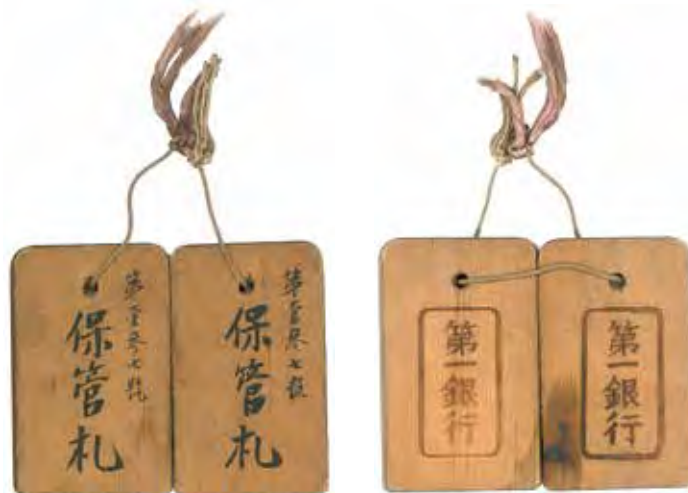 第壹參七號
保管札
第壹參七號
保管札
第一銀行
第一銀行